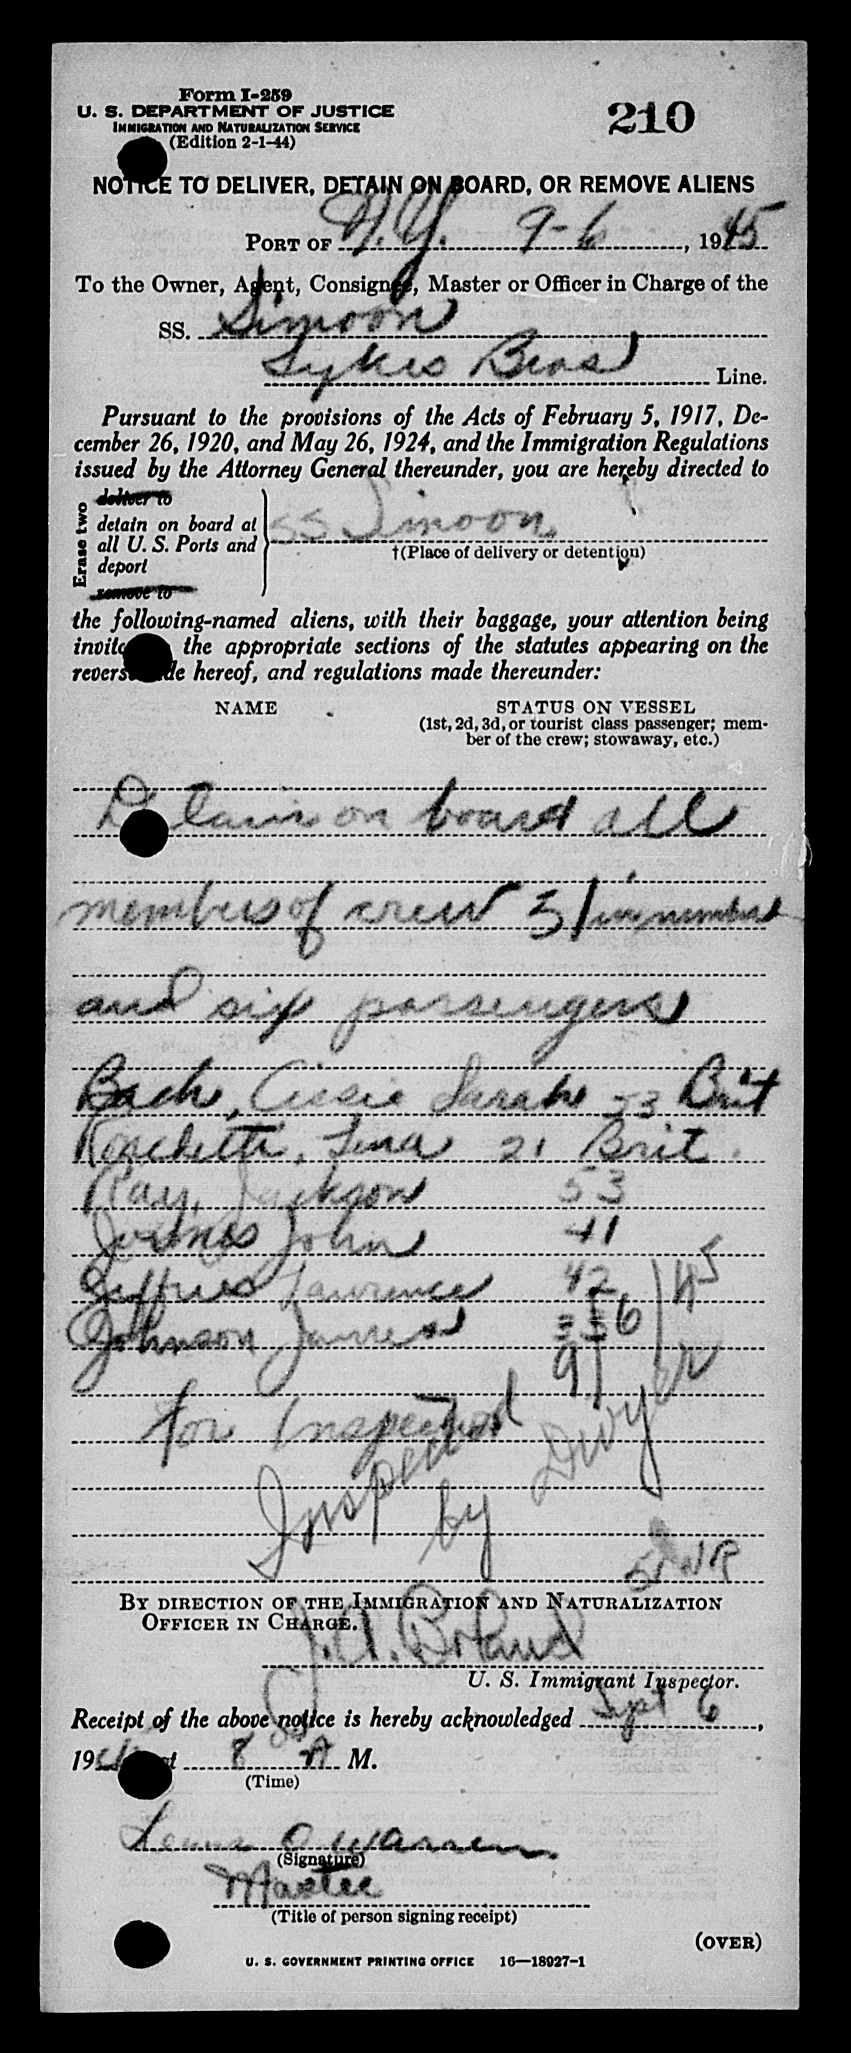 Form I-259
U. S. DEPARTMENT OF JUSTICE
IMMIGRATION AND NATURALIZATION SERVICE
(Edition 2-1-44)
210
NOTICE TO DELIVER, DETAIN ON BOARD, OR REMOVE ALIENS
PORT OF N.Y. 9-6, 1945
To the Owner, Agent, Consignee, Master or Officer in Charge of the
SS. Simoon
Sykes Bros Line.
Pursuant to the provisions of the Acts of February 5, 1917, De-
cember 26, 1920, and May 26, 1924, and the Immigration Regulations
issued by the Attorney General thereunder, you are hereby directed to
Erase two
deliver to
detain on board at
all U. S. Ports and
deport
remove to
SS Simoon
†(Place of delivery or detention)
the following-named aliens, with their baggage, your attention being
the appropriate sections of the statutes appearing on the
hereof, and regulations made thereunder:
NAME
STATUS ON VESSEL
(1st, 2d, 3d, or tourist class passenger; mem-
ber of the crew; stowaway, etc.)
Detain on board all
members of crew 31 in number
and six passengers
Bach, Cissie Sarah 53 Brit
Lena 21 Brit.
Ray, Jackson 53
John 41
Jeffries Lawrence 42
Johnson James
for Inspection
Inspected
by Dwyer
BY DIRECTION OF THE IMMIGRATION AND NATURALIZATION
OFFICER IN CHARGE.
J. A. Boland
U. S. Immigrant Inspector.
Receipt of the above notice is hereby acknowledged Sept 6,
1945 at 8 A M.
(Time)
Louis O Warren
(Signature)
Master
(Title of person signing receipt)
(OVER)
U. S. GOVERNMENT PRINTING OFFICE 16—18927-1